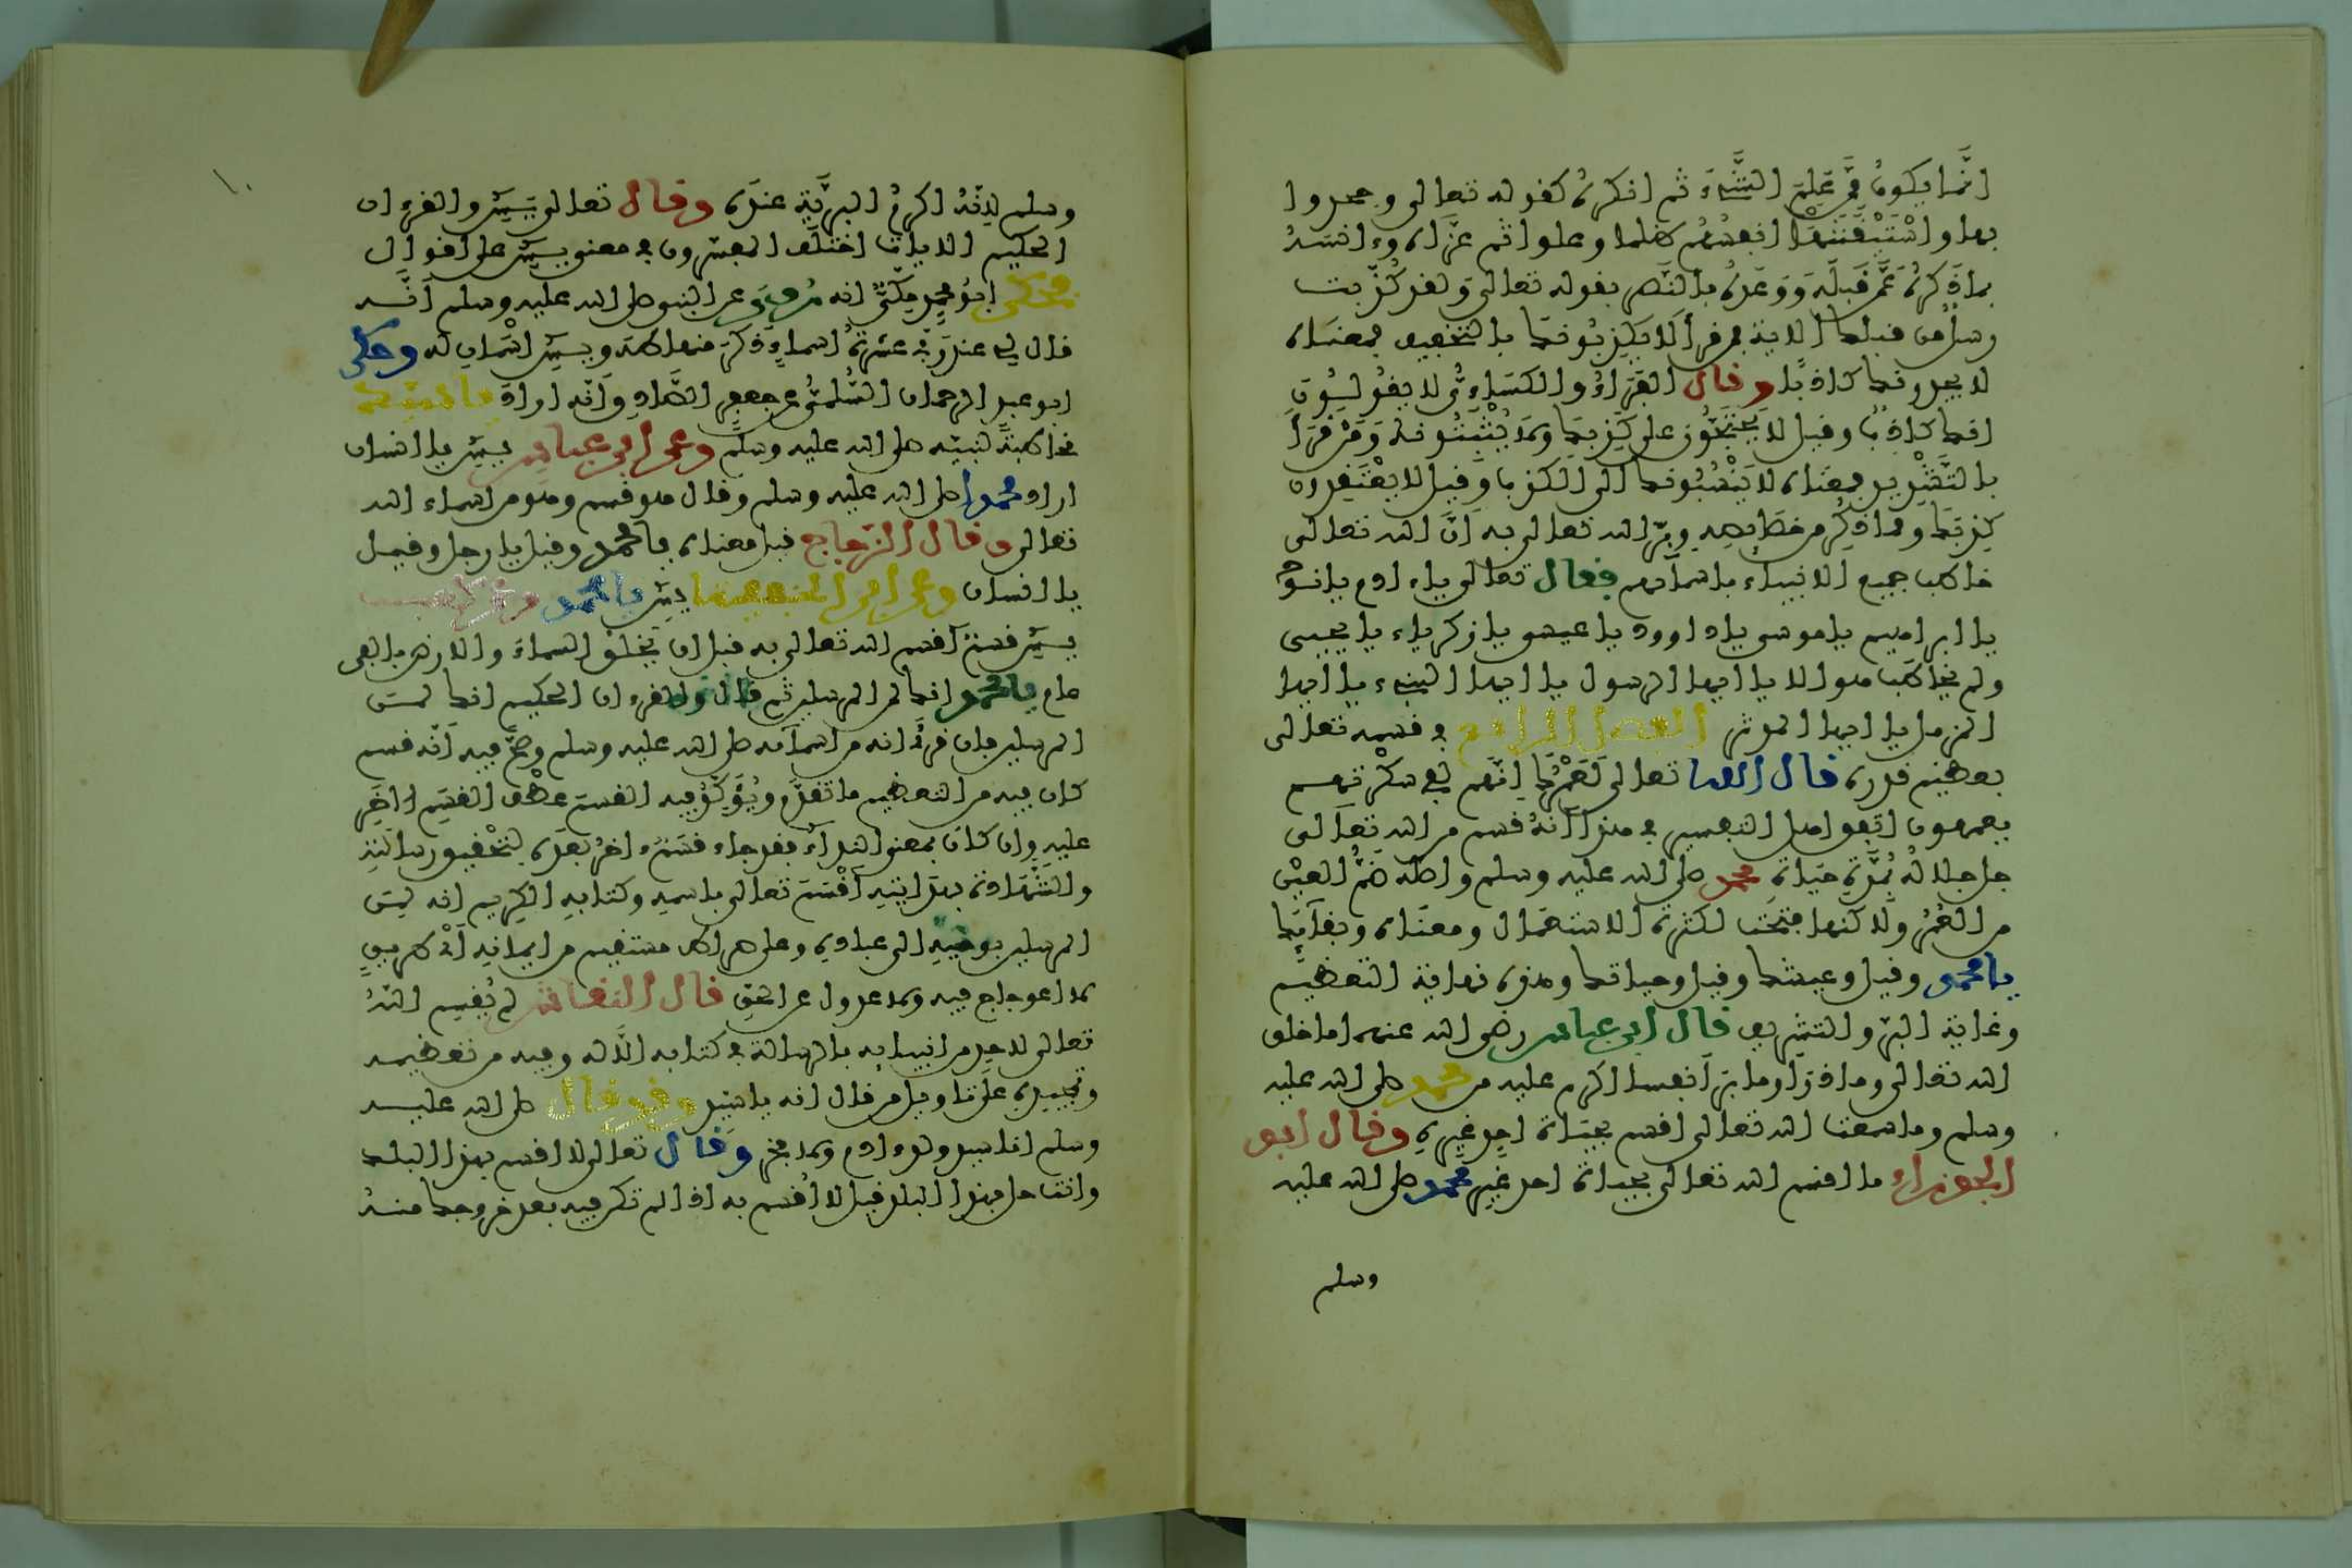 انما يكون ممن علم الشيء ثم انكره كقوله تعالى وجحدوا
بها واستيقنتها انفسهم ظلما وعلوا ثم عزاه وءانسه
بما ذكره عمن قبله ووعده بالنصر بقوله تعالى ولقد كذبت
رسل من قبلك الاية فمن قرأ لا يكذبونك بالتخفيف فمعناه
لا يجدونك كاذبا وقال الفراء والكسائي لا يقولون
انك كاذب وقيل لا يحتجون على كذبك ولا يثبتونه ومن قرأ
بالتشديد فمعناه لا ينسبونك الى الكذب وقيل لا يعتقدون
كذبك ومما ذكر من خصائصه وبر الله تعالى به ان الله تعالى
خاطب جميع الانبياء باسمآئهم فقال تعالى ياءادم يانوح
يا ابراهيم ياموسى ياداوود ياعيسى يازكرياء يايحيى
ولم يخاطب هو الا يا ايها الرسول يا ايها النبيء يا ايها
المزمل يا ايها المدثر الفصل الرابع في قسمه تعالى
بعظيم قدره قال الله تعالى لعمرك انهم لفي سكرتهم
يعمهون اتفق اهل التفسير في هذا أنه قسم من الله تعالى
جل جلاله بمدة حياة محمد صلى الله عليه وسلم واصله ضم العين
من العمر ولاكنها فتحت لكثرة الاستعمال ومعناه وبقآئك
يا محمد وقيل وعيشك وقيل وحياتك وهذه نهاية التعظيم
وغاية البر والتشريف قال ابن عباس رضي الله عنهما ما خلق
الله تعالى وما ذرأ وما برأ نفسا اكرم عليه من محمد صلى الله عليه
وسلم وما سمعت الله تعالى اقسم بحياة احد غيره وقال ابو
الجوزاء ما اقسم الله تعالى بحياة احد غير محمد صلى الله عليه
وسلم
١٠
وسلم لانه اكرم البرية عنده وقال تعالى يس والقرءان
الحكيم الايات اختلف المفسرون في معنى يس على اقوال
فحكى ابو محمد مكي انه روي عن النبي صلى الله عليه وسلم انه
قال لي عند ربي عشرة اسماء ذكر منها طه ويس اسمان له وحكى
ابو عبد الرحمان السلمي عن جعفر الصادق انه اراد يا سيد
مخاطبة لنبيه صلى الله عليه وسلم وعن ابن عباس يس يا انسان
اراد محمدا صلى الله عليه وسلم وقال هو قسم وهو من اسماء الله
تعالى وقال الزجاج قيل معناه يا محمد وقيل يا رجل وقيل
يا انسان وعن ابن الحنفية يس يا محمد وعن كعب
يس قسم أقسم الله تعالى به قبل ان يخلق السماء والارض بالفي
عام يا محمد انك لمن المرسلين ثم قال والقرءان الحكيم انك لمن
المرسلين فان قدر انه من اسمآئه صلى الله عليه وسلم وصح فيه أنه قسم
كان فيه من التعظيم ما تقدم ويؤكد فيه القسم عطف القسم الاخر
عليه وان كان بمعنى النداء فقد جاء قسم ءاخر بعده لتحقيق رسالته
والشهادة بهدايته أقسم تعالى باسمه وكتابه الكريم انه لمن
المرسلين بوحيه الى عباده وعلى صراط مستقيم من ايمانه أي طريق
لا اعوجاج فيه ولا عدول عن الحق قال النقاش لم يقسم الله
تعالى لاحد من انبيائه بالرسالة في كتابه الا له وفيه من تعظيمه
وتمجيده على تاويل من قال انه يا سيد وقد قال صلى الله عليه
وسلم انا سيد ولد ءادم ولا فخر وقال تعالى لا اقسم بهذا البلد
وانت حل بهذا البلد قيل لا أقسم به اذا لم تكن فيه بعد خروجك منه